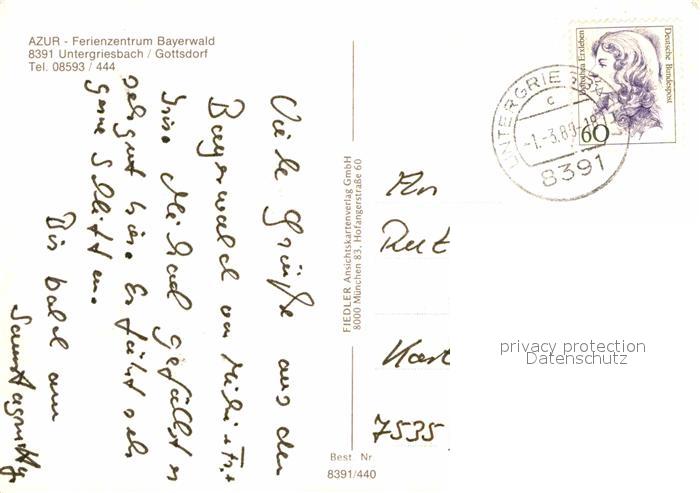 AZUR - Ferienzentrum Bayerwald
8391 Untergriesbach / Gottsdorf
Tel. 08593 / 444
Viele Grüße aus dem
Bayerwald von
Michael gefällt es
sehr gut hier. Er fährt sehr
gerne Schlitten.
Bis bald am
FIEDLER Ansichtskartenverlag GmbH
8000 München 83, Hofangerstraße 60
Best Nr.
8391/440
Deutsche Bundespost
Dorothea Erxleben
60
UNTERGRIE
c
8391
An
7535
privacy protection
Datenschutz